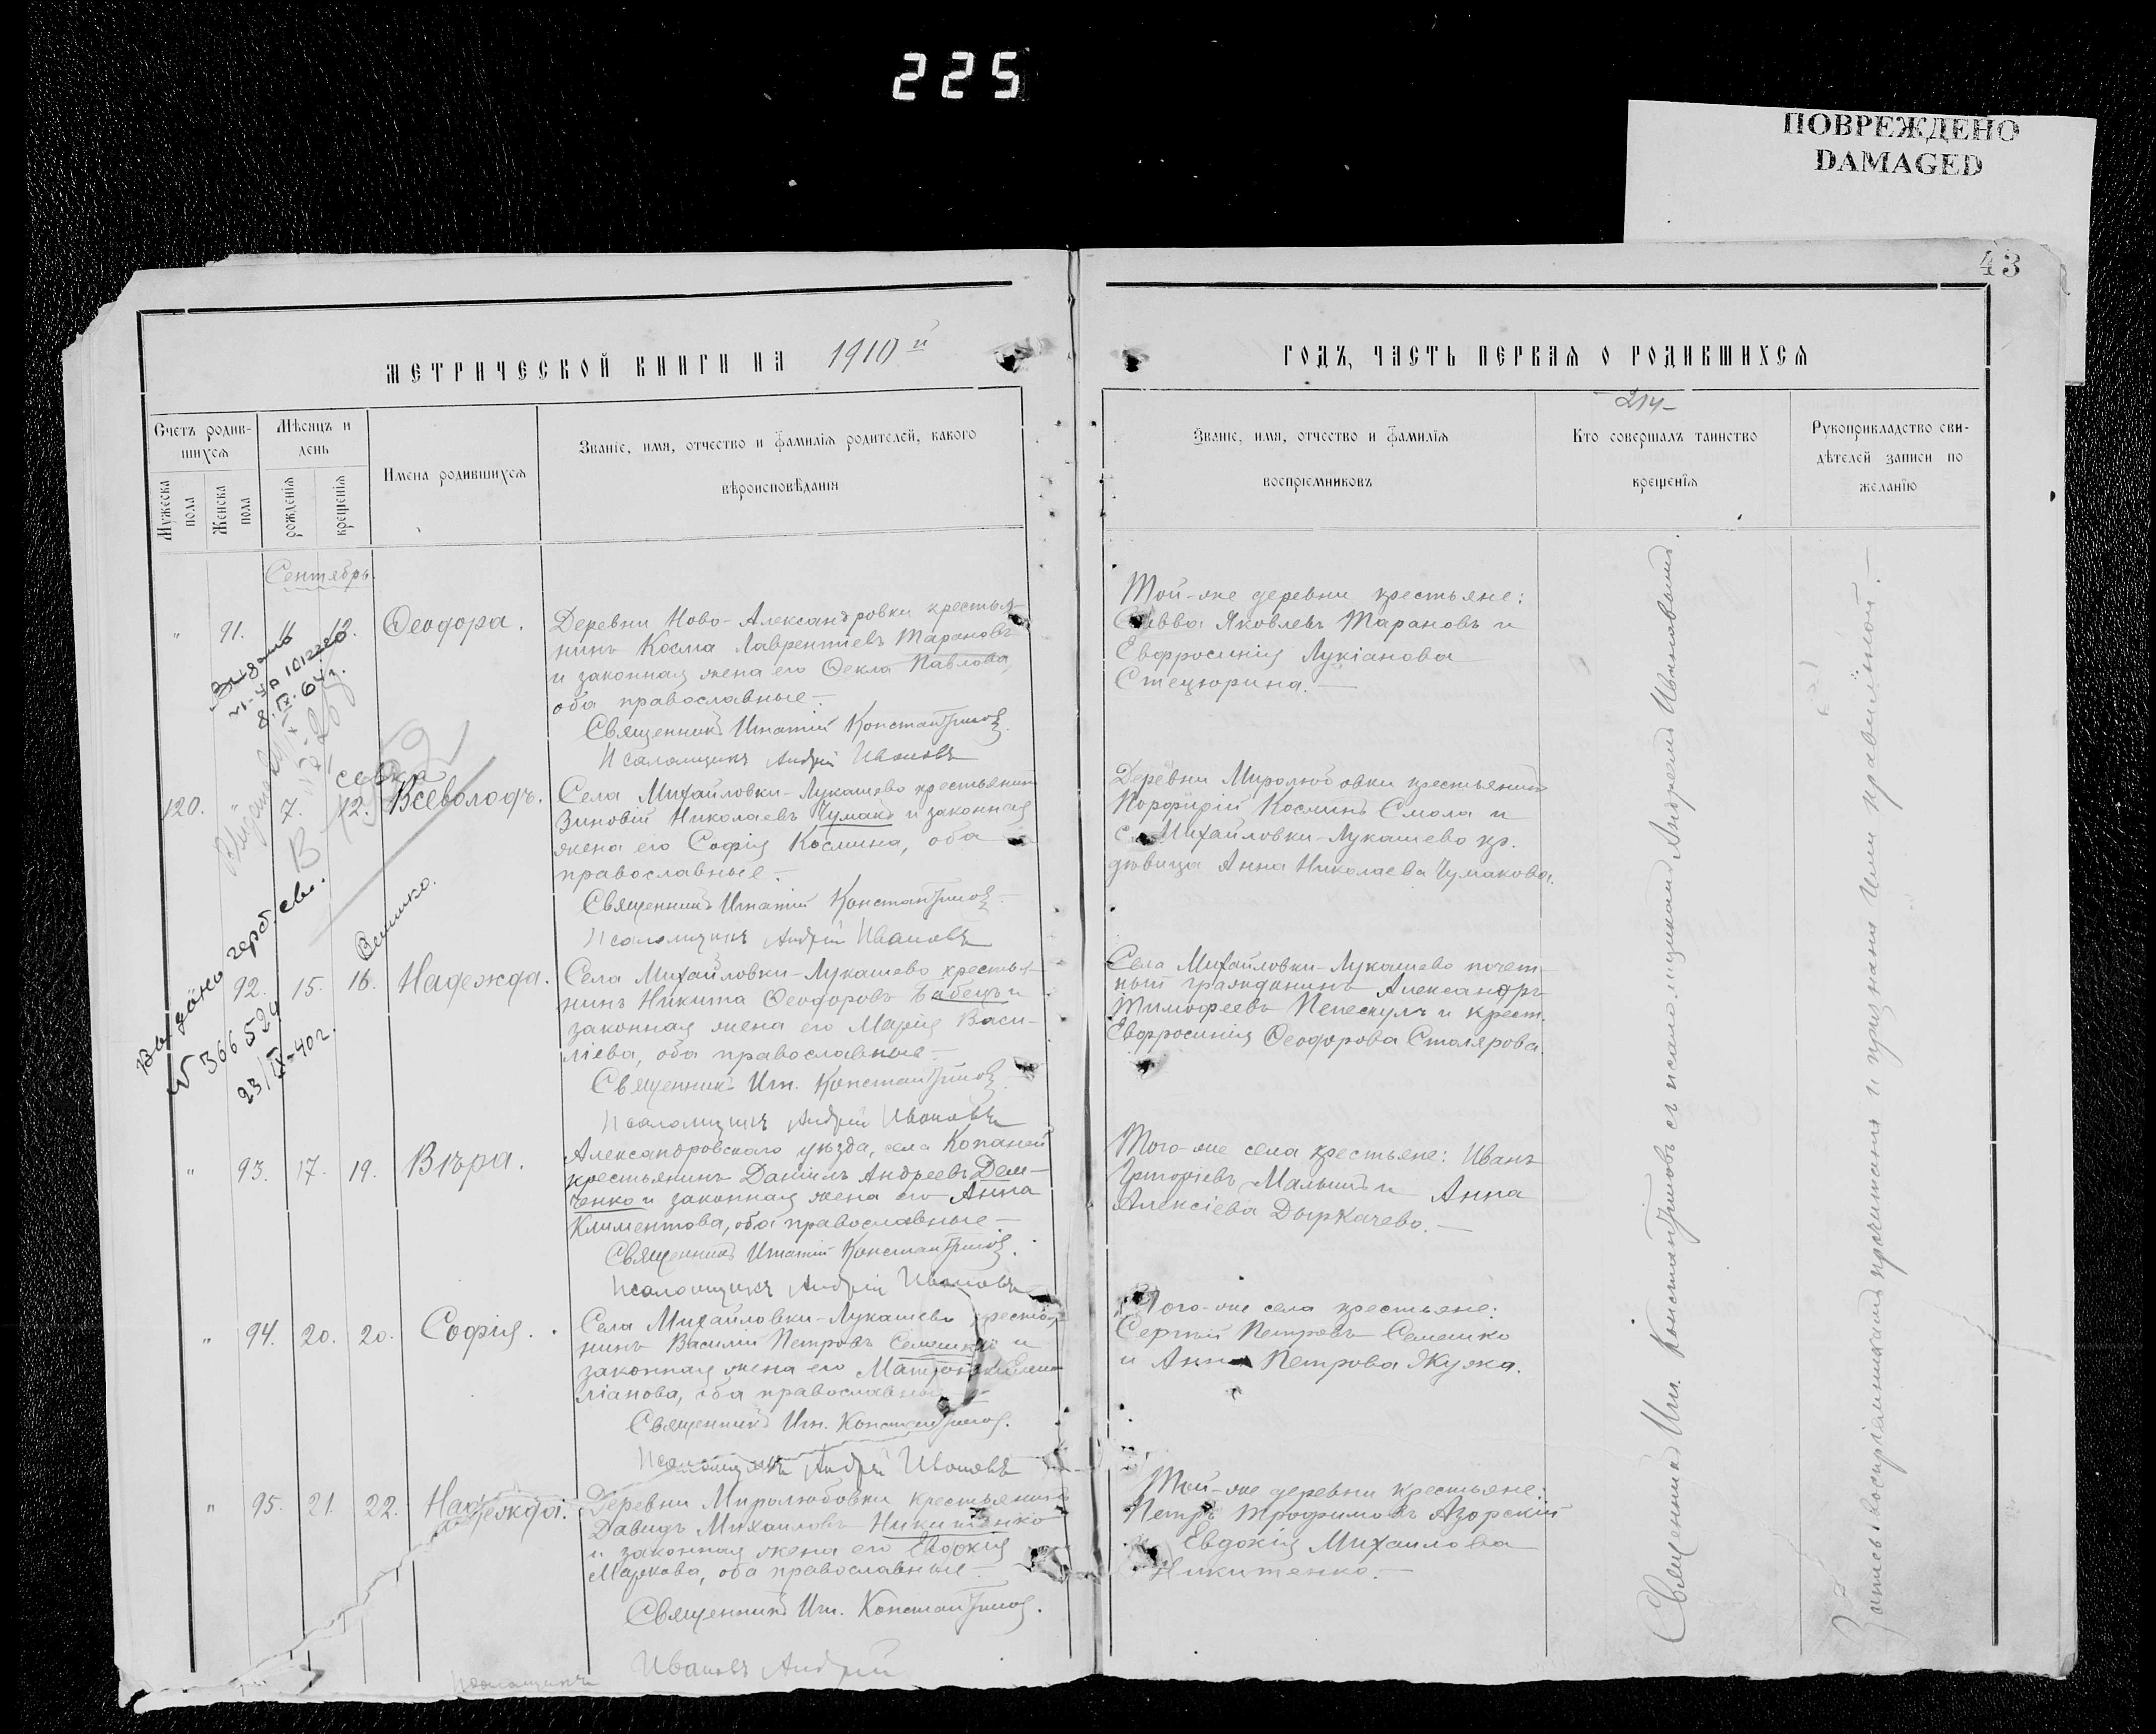 225
ПОВРЕЖДЕНО
DAMAGED
43
МЕТРИЧЕСКОЙ КНИГИ НА 1910й
Счетъ родив-
шихся
Мѣсяцъ и
день
Имена родившихся
Званіе, имя, отчество и фамилія родителей, какого
вѣроисповѣданія
Мужеска
пола
Женска
пола
рожденія
крещенія
Сентябрь
" 91. 11 12. Ѳеодора.
Деревни Ново-Александровки крестья-
нинъ Косма Лаврентіевъ Тарановъ
и законная жена его Ѳекла Павлова,
оба православные.—
Священникъ Игнатій
Псаломщикъ Андрей Ивановъ
120. " 7. 12. Всеволодъ.
севка
Села Михайловки-Лукашево крестьянинъ
Зиновій Николаевъ Чумакъ и законная
жена его Софія Космина, оба
православные.—
Священникъ Игнатій
Псаломщикъ Андрей Ивановъ
Выдано герб. св.
N 366524
23/IX-40г.
92. 15. 16. Надежда.
Села Михайловки-Лукашево крестья-
нинъ Никита Ѳеодоровъ Бабецъ и
законная жена его Марія Васи-
ліева, оба православные.—
Священникъ Игн.
Псаломщикъ Андрей Ивановъ
" 93. 17. 19. Вѣра.
Александровскаго уѣзда, села Копаней
крестьянинъ Даніилъ Андреевъ Дем-
ченко и законная жена его Анна
Климентова, оба православные.—
Священникъ Игнатій
Псаломщикъ Андрей Ивановъ
" 94. 20. 20. Софія.
Села Михайловки-Лукашево крестья-
нинъ Василій Петровъ Семешко и
законная жена его
ліанова, оба православные.—
Священникъ Игн.
Псаломщикъ Андрей Ивановъ
" 95. 21. 22. Надежда.
Деревни Миролюбовки крестьянинъ
Давидъ Михаиловъ Никитенко
и законная жена его Евдокія
Маркова, оба православные.—
Священникъ Игн.
Псаломщикъ Ивановъ Андрей
ГОДЪ, ЧАСТЬ ПЕРВАЯ О РОДИВШИХСЯ
Званіе, имя, отчество и фамилія
воспріемниковъ
214-
Кто совершалъ таинство
крещенія
Рукоприкладство сви-
дѣтелей записи по
желанію
Той-же деревни крестьяне:
Савва Яковлевъ Тарановъ и
Евфросинія Лукіанова
Стецюрина.—
Деревни Миролюбовки крестьянинъ
Порфирій Косминъ Смола и
с. Михайловки-Лукашево кр.
дѣвица Анна Николаева Чумакова.
Села Михайловки-Лукашево почет-
ный гражданинъ Александръ
Тимофеевъ Пепескулъ и крест.
Евфросинія Ѳеодорова Столярова.
Того-же села крестьяне: Иванъ
Григоріевъ Малышъ и Анна
Алексіева Дыркачево.—
Того-же села крестьяне:
Сергій Петровъ Семешко
и Анна Петрова Жужа.
Той-же деревни крестьяне:
Петръ Трофимовъ Азорскій
Евдокія Михаилова
Никитенко.—
Священникъ Игн. съ псаломщикомъ Андреемъ Ивановымъ.
Запись воспріемникамъ прочитана и признана ими правильной.—